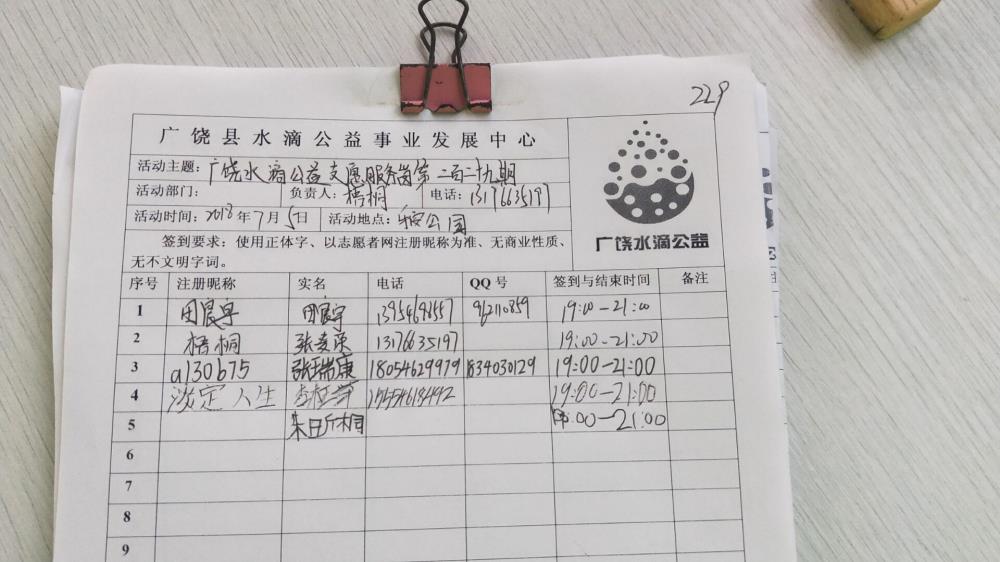 229
广饶县水滴公益事业发展中心
活动主题：广饶水滴公益支愿服务岗第二百二十九期
活动部门： 负责人：梧桐 电话：13176635197
活动时间：2018年7月5日 活动地点：公园
签到要求：使用正体字、以志愿者网注册昵称为准、无商业性质、
无不文明字词。
广饶水滴公益
序号 注册昵称 实名 电话 QQ号 签到与结束时间 备注
1 田宸宇 田宸宇 962110859 19:00-21:00
2 梧桐 13176635197 19:00-21:00
3 a130b75 张瑞康 18054629979 1834030129 19:00-21:00
4 淡定人生 19:00-21:00
5 19:00-21:00
6
7
8
9